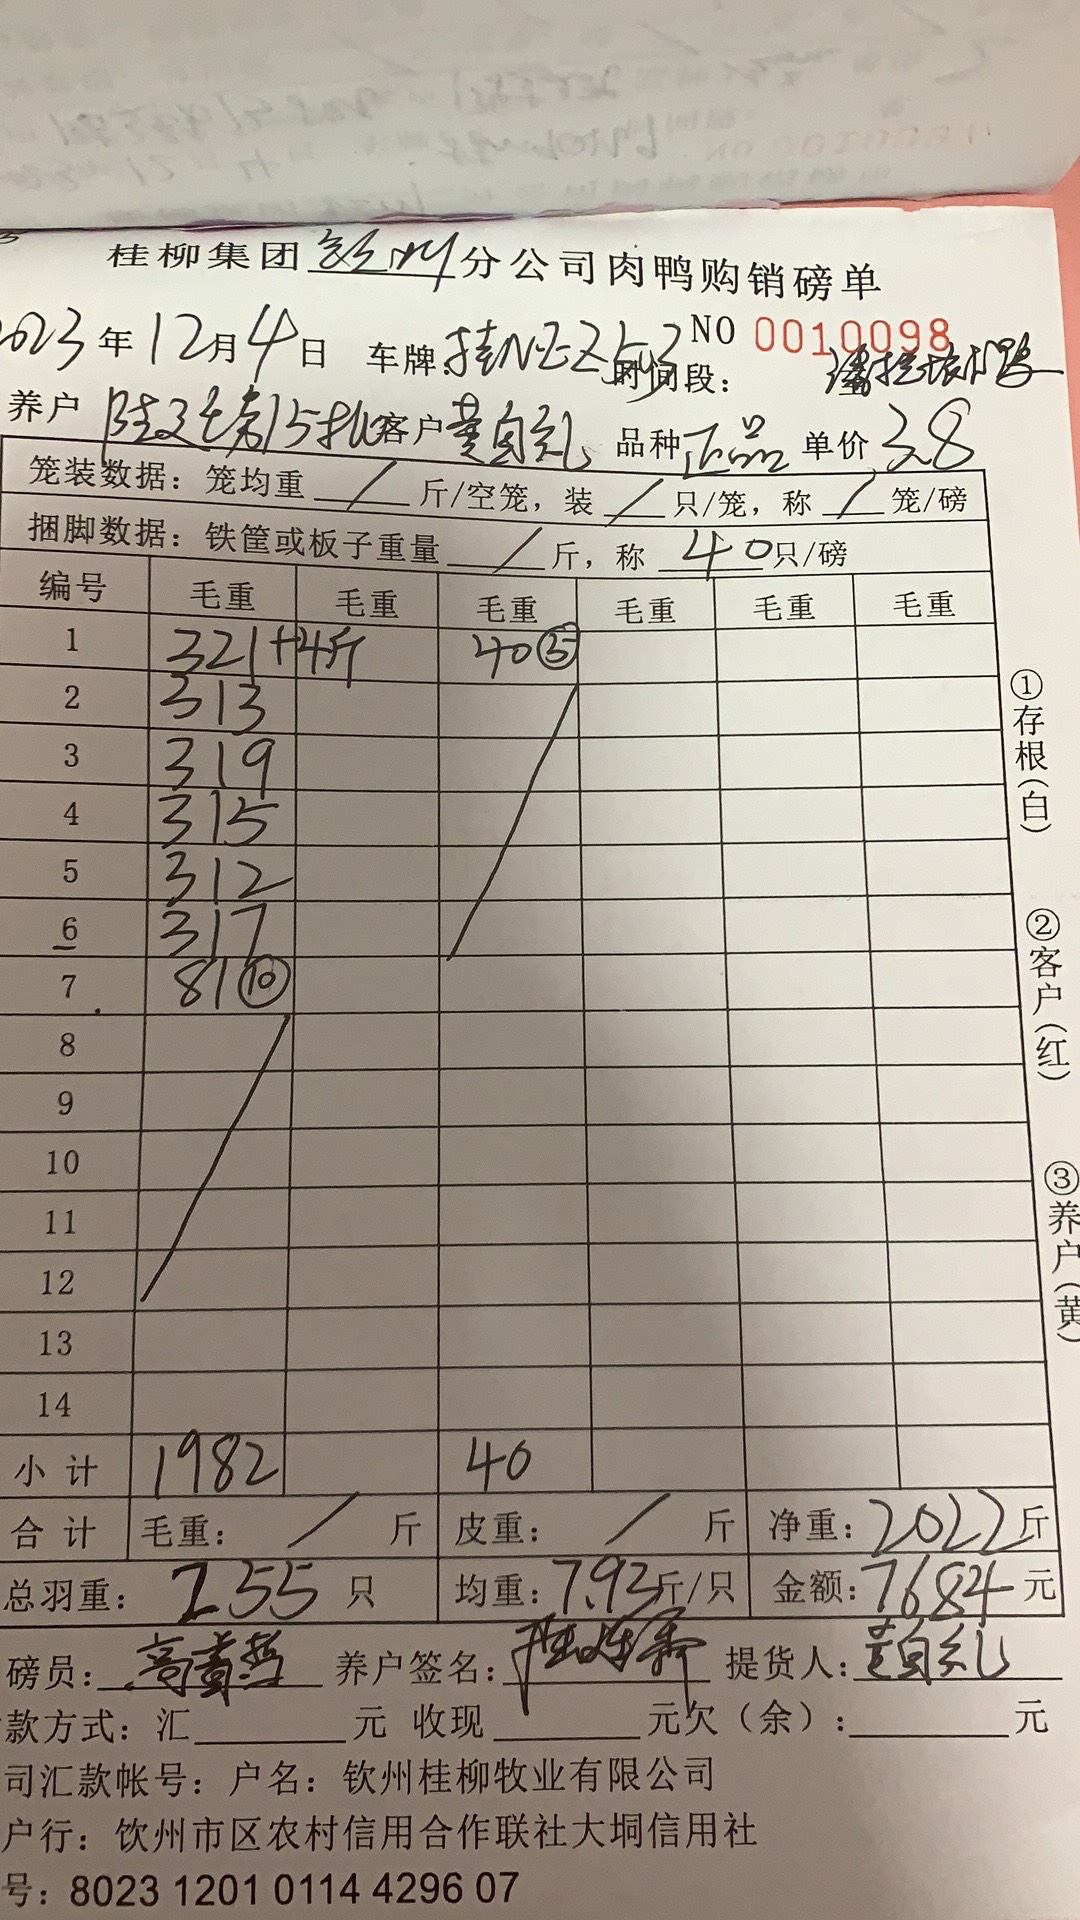 桂柳集团钦州分公司肉鸭购销磅单
2023年12月4日 车牌: NO 0010098
时间段:
养户 15批 客户 黄自礼 品种 正品 单价 3.8
笼装数据：笼均重 / 斤/空笼，装 / 只/笼，称 / 笼/磅
捆脚数据：铁筐或板子重量 / 斤，称 40 只/磅
编号 毛重 毛重 毛重 毛重 毛重 毛重
1 321+4斤 40⑤
2 313
3 319
4 315
5 312
6 317
7 81⑩
8
9
10
11
12
13
14
小计 1982 40
合计 毛重： / 斤 皮重： / 斤 净重：2022斤
总羽重：255 只 均重：7.93斤/只 金额：7684元
磅员： 养户签名： 提货人：黄自礼
款方式：汇 元 收现 元欠（余）： 元
司汇款帐号：户名：钦州桂柳牧业有限公司
户行：钦州市区农村信用合作联社大垌信用社
号：8023 1201 0114 4296 07
①存根（白）
②客户（红）
③养户（黄）